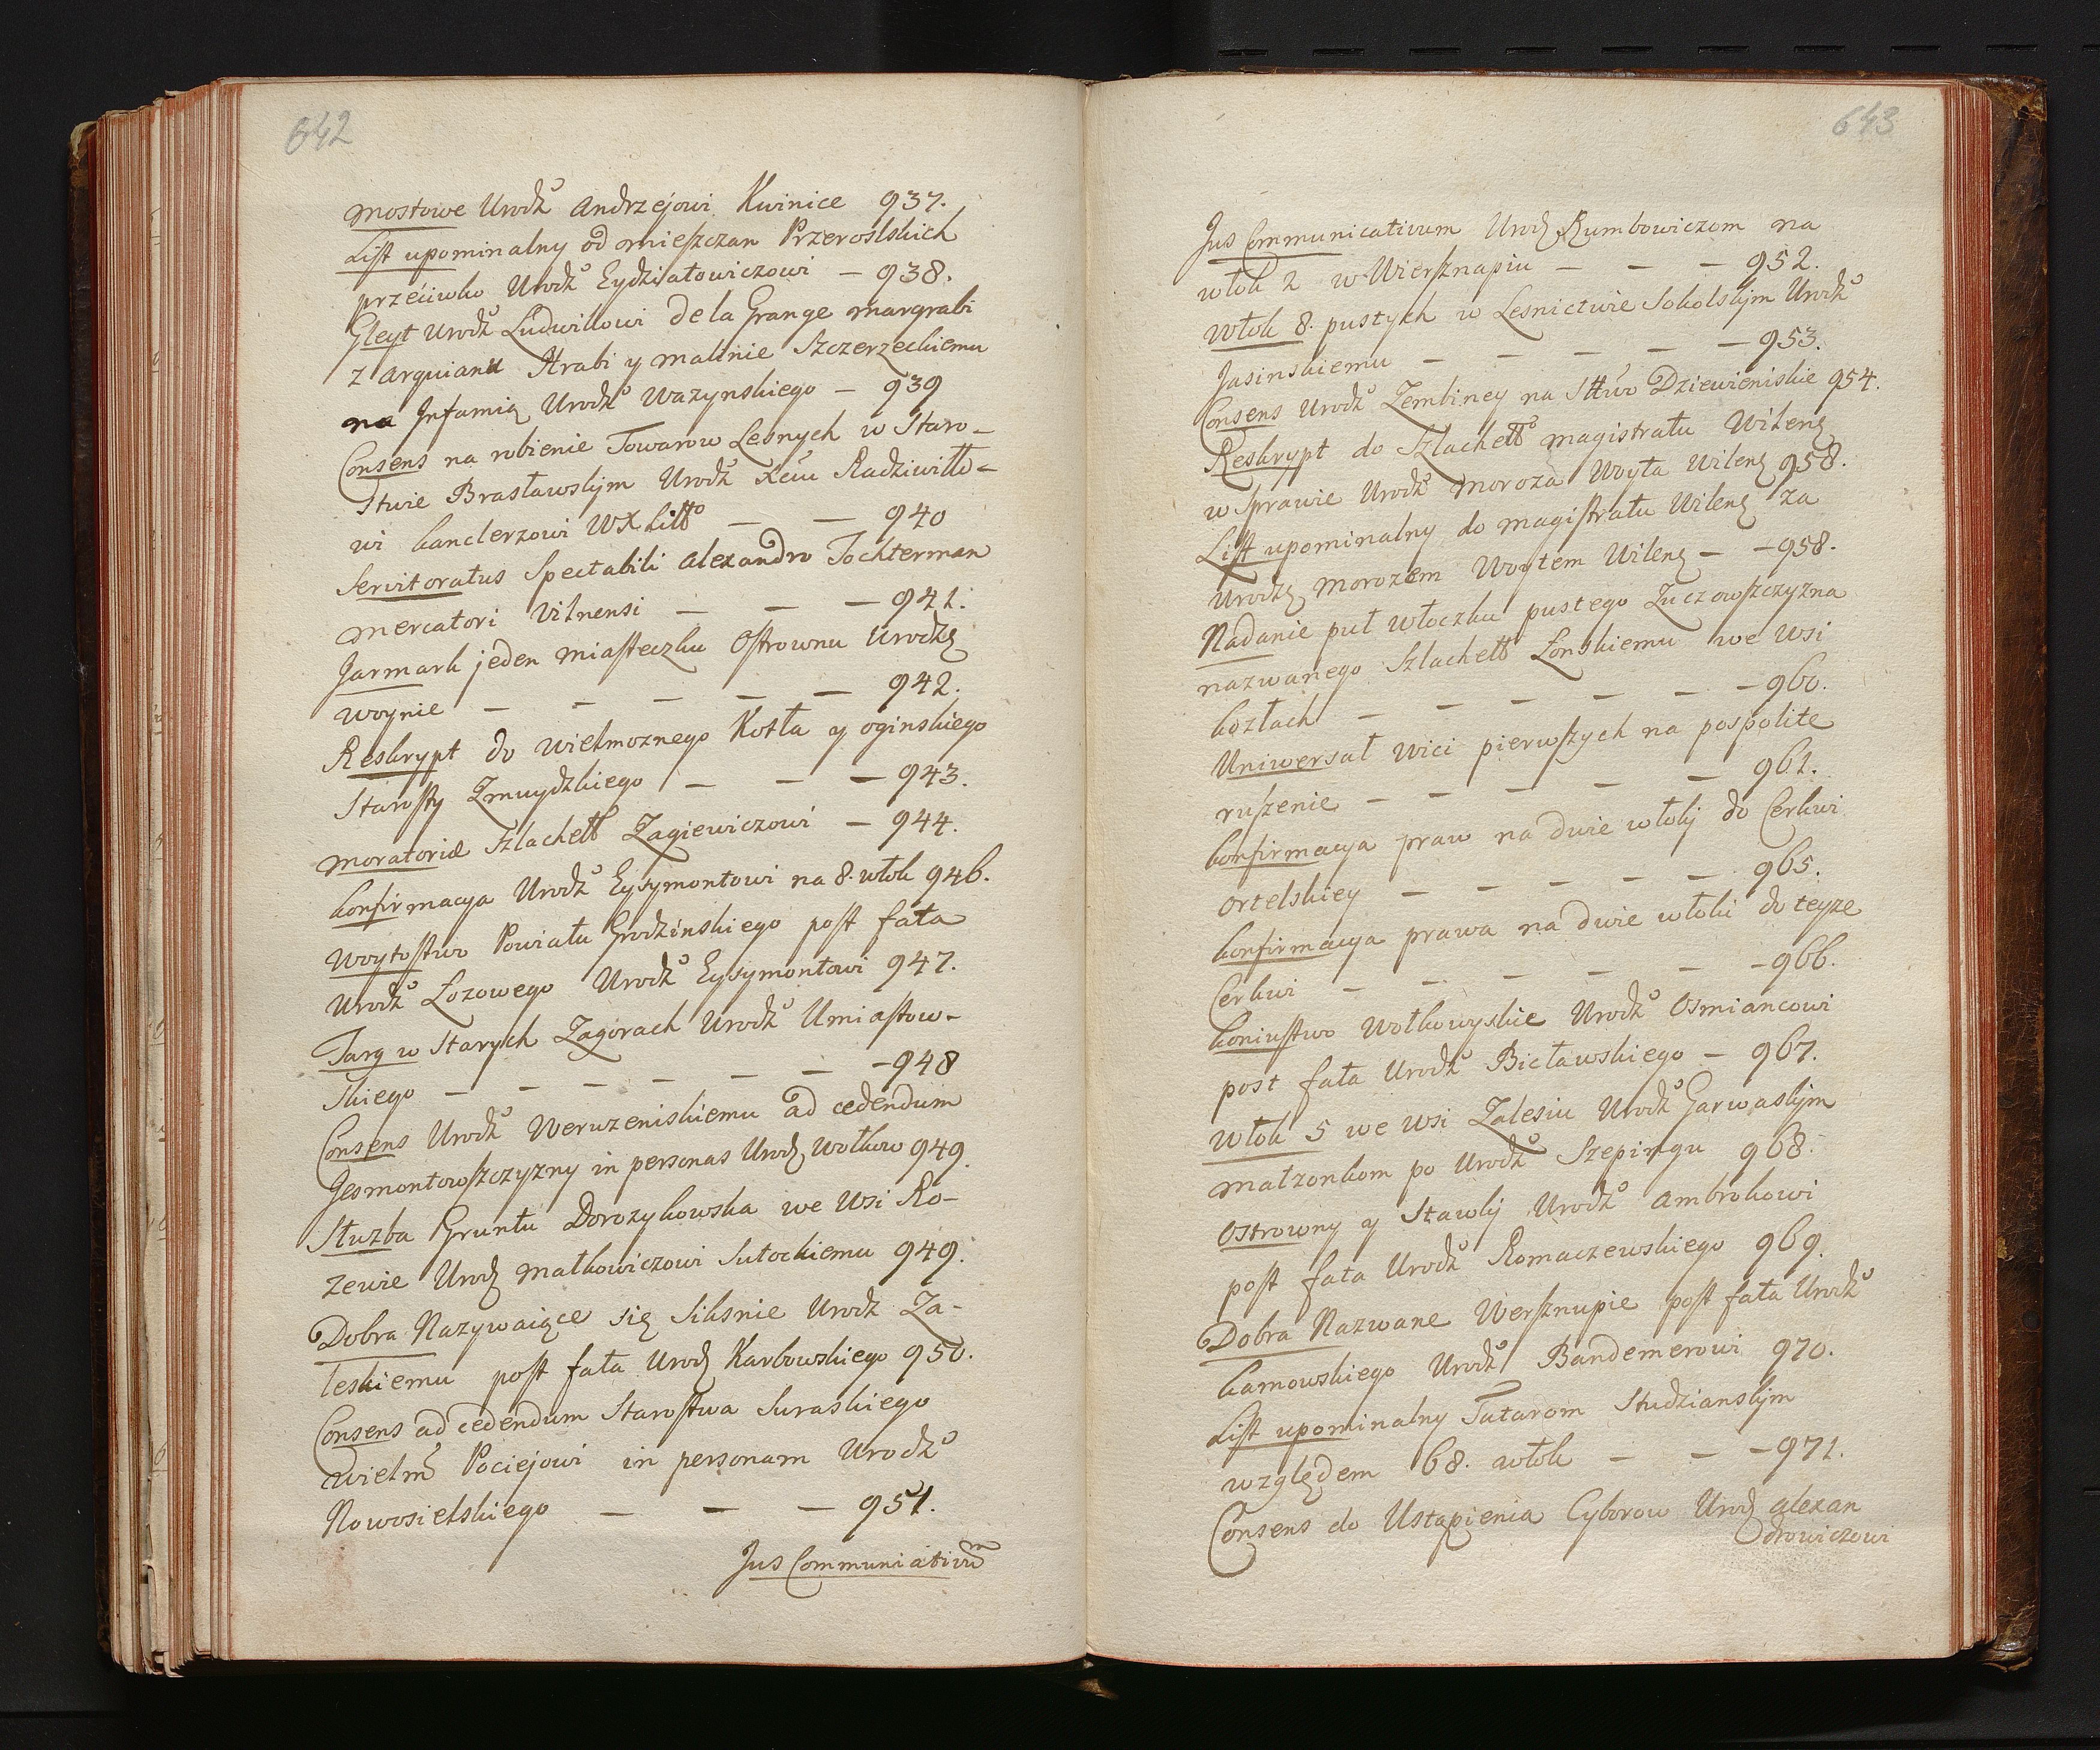 642
Mostowe Urodz° Andrzejowi Kwinice 937.
List upominalny od mieszczan Przeroslskich
przeciwko Urodz° Eydziatowiczowi — 938.
Gleyt Urodz° Ludwikowi de la Grange Margrabi
z Arquianu Hrabi y Malinie Szczerzeckiemu
na Infamią Urodz° Wazynskiego — 939
Consens na robienie Towarow Lesnych w Staro-
stwie Brasławskim Urodz° Xciu Radziwiłło-
wi Kanclerzowi WX Litt° — — 940
Servitoratus Spectabili Alexandro Tochterman
Mercatori Vilnensi — — — 941.
Jarmark jeden Miasteczku Ostrownu Urodz
Woynie — — — — — 942.
Reskrypt do Wielmoznego Kotła y Oginskiego
Starosty Zmuydzkiego — — — 943.
Moratoriæ Szlachett Zagiewiczowi — 944.
Konfirmacya Urodz° Eysymontowi na 8. włok 946.
Woytostwo Powiatu Grodzinskiego post fata
Urodz° Łozowego Urodz° Eysymontowi 947.
Targ w Starych Zagorach Urodz° Umiastow-
skiego — — — — — — — 948
Consens Urodz° Weruzeniskiemu ad cedendum
Jesmontowszczyzny in personas Urodz Wołkow 949.
Służba Gruntu Dorozykowska we Wsi Ro-
zewie Urodz Małkowiczowi Sutockiemu 949.
Dobra Nazywaiące się Siksnie Urodz Za-
leskiemu post fata Urodz Karbowskiego 950.
Consens ad cedendum Starostwa Suraskiego
Wielm° Pociejowi in personam Urodz°
Nowosielskiego — — — 951.
Jus Communicativū
643
Jus Communicativum Urodz Rumbowiczom na
włok 2 w Wiersznapiu — — — 952.
Włok 8. pustych w Lesnictwie Sokolskim Urodz°
Jasinskiemu — — — — — 953.
Consens Urodz° Zembiney na Sttwo Dziewieniskie 954.
Reskrypt do Szlachett° Magistratu Wilens
w Sprawie Urodz° Moroza Woyta Wilens 958.
List upominalny do Magistratu Wilens za
Urodz Morozem Woytem Wilens — — 958.
Nadanie puł włoczku pustego Zuczowszczyzna
nazwanego Szlachett Łonskiemu we Wsi
Kozłach — — — — — — 960.
Uniwersał Wici pierwszych na pospolite
ruszenie — — — — — 961.
Konfirmacya praw na dwie włoki do Cerkwi
Ortelskiey — — — — — 965.
Konfirmacya prawa na dwie włoki do teyze
Cerkwi — — — — — — 966.
Koniustwo Wołkowyskie Urodz° Osmiancowi
post fata Urodz° Bieławskiego — 967.
Włok 5 we Wsi Zalesiu Urodz° Garwaskim
Małzonkom po Urodz° Szepingu 968.
Ostrowny y Stawki Urodz° Ambrokowi
post fata Urodz° Romaczewskiego 969.
Dobra Nazwane Wersznupie post fata Urodz°
Karnowskiego Urodz° Bandemerowi 970.
List upominalny Tatarom Studzianskim
względem 68. włok — — — 971.
Consens do Ustąpienia Cyborow Urodz Alexan
drowiczowi